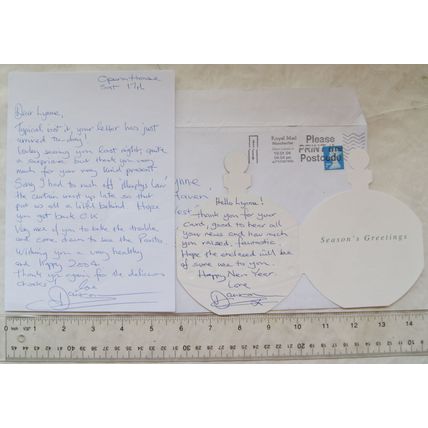 Opera House
Sat 17th
Dear Lynne,
Typical isn't it, your letter has just
arrived to-day!
Lovely seeing you last night, quite
a surprise but thank you very
much for your very kind present.
Sorry I had to rush off
the curtain went up late so that
put us all a bit behind. Hope
you got back O.K.
Very nice of you to take the trouble
and come down to see the Panto
Wishing you a very healthy
and Happy 2004.
Thank you again for the delicious
chocs.
Love
Hello Lynne!
Thank you for your
card, good to hear all
your news and how much
you raised, fantastic.
Hope the enclosed will be
of some use to you.
Happy New Year.
Season's Greetings
Royal Mail
Manchester
Please
PRINT the
Postcode